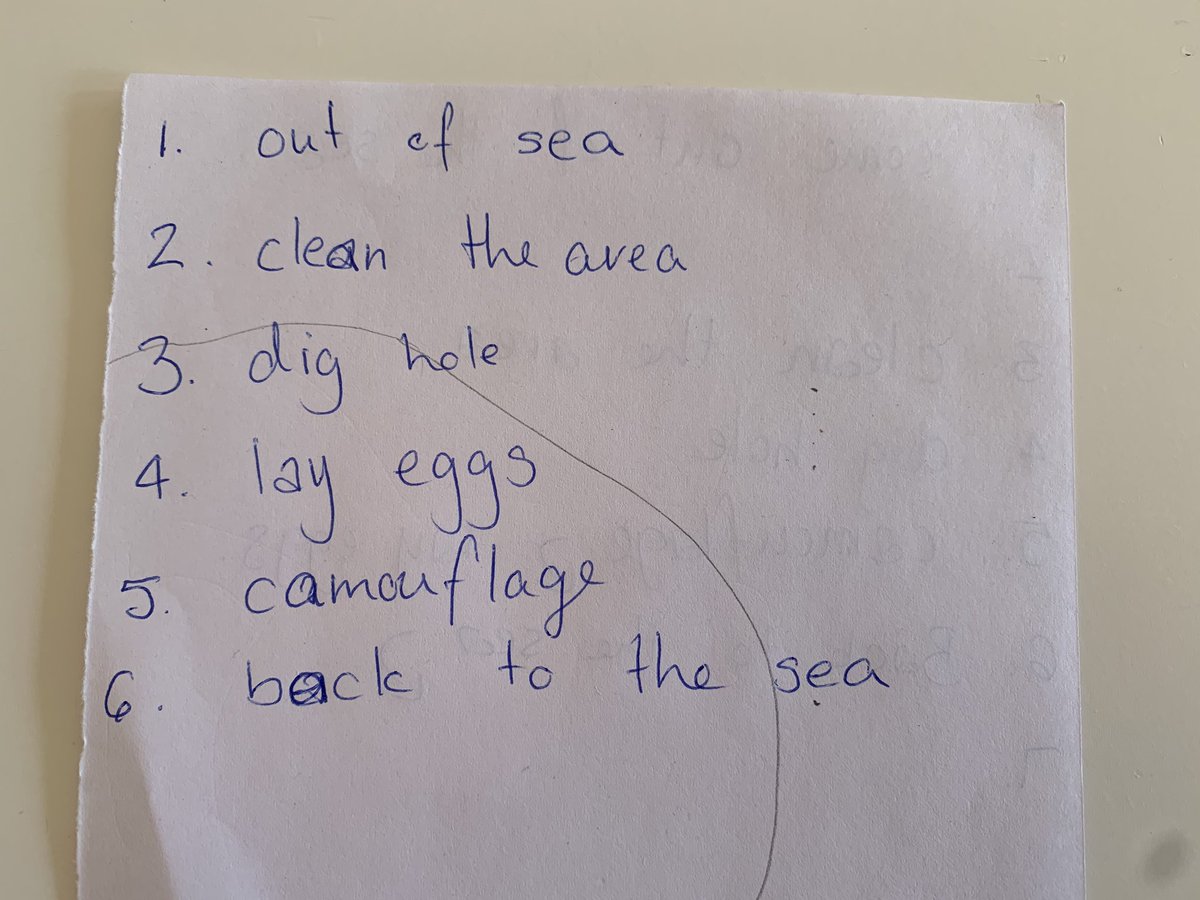 1. out of sea
2. clean the area
3. dig hole
4. lay eggs
5. camouflage
6. back to the sea